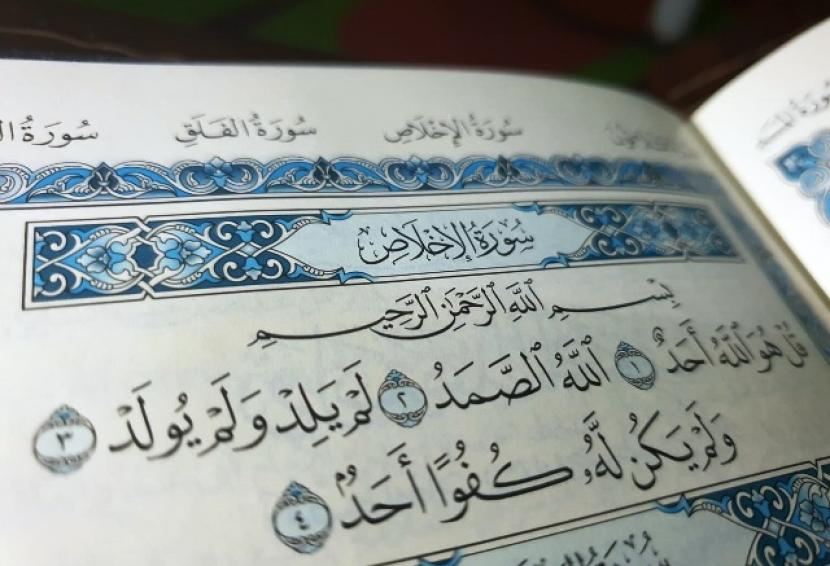 سُورَةُ الإِخْلَاصِ سُورَةُ الفَلَقِ سُورَةُ
سُورَةُ الإِخْلَاصِ
بِسْمِ ٱللَّهِ ٱلرَّحْمَٰنِ ٱلرَّحِيمِ
قُلْ هُوَ ٱللَّهُ أَحَدٌ ١ ٱللَّهُ ٱلصَّمَدُ ٢ لَمْ يَلِدْ وَلَمْ يُولَدْ ٣
وَلَمْ يَكُن لَّهُۥ كُفُوًا أَحَدٌۢ ٤
سُورَةُ